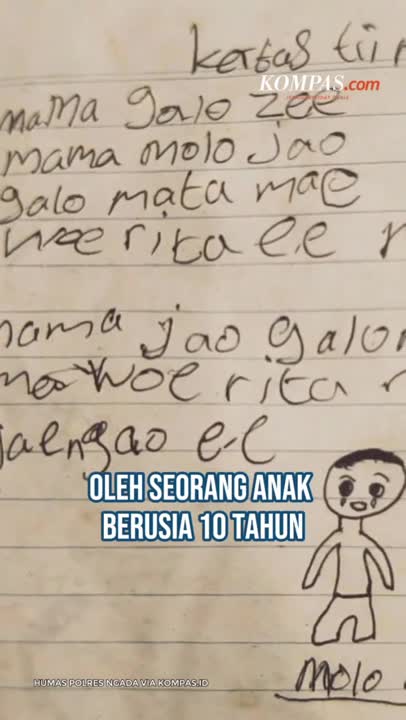 kertas tii
KOMPAS.com
mama galo zee
mama molo jao
galo mata mae
woe rita ee
mama jao galo
mae woe rita
jaengao ee
OLEH SEORANG ANAK
BERUSIA 10 TAHUN
molo
HUMAS POLRES NGADA VIA KOMPAS.ID